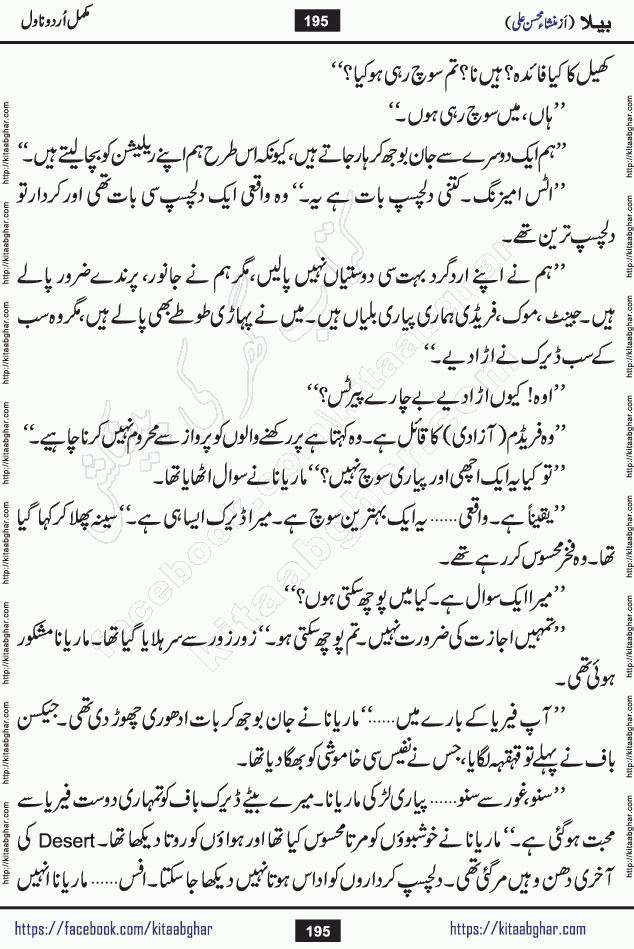 بیلا (از منشاء محسن علی) 195 مکمل اُردو ناول
کھیل کا کیا فائدہ؟ ہیں نا؟ تم سوچ رہی ہو کیا؟‘‘
’’ہاں، میں سوچ رہی ہوں۔‘‘
’’ہم ایک دوسرے سے جان بوجھ کر ہار جاتے ہیں، کیونکہ اس طرح ہم اپنے ریلیشن کو بچا لیتے ہیں۔‘‘
’’اٹس امیزنگ۔ کتنی دلچسپ بات ہے یہ۔‘‘ وہ واقعی ایک دلچسپ سی بات تھی اور کردار تو
دلچسپ ترین تھے۔
’’ہم نے اپنے اردگرد بہت سی دوستیاں نہیں پالیں، مگر ہم نے جانور، پرندے ضرور پالے
ہیں۔ جینٹ، موک، فریڈی ہماری پیاری بلیاں ہیں۔ میں نے پہاڑی طوطے بھی پالے ہیں، مگر وہ سب
کے سب ڈیرک نے اڑا دیے۔‘‘
’’اوہ! کیوں اڑا دیے بے چارے پیرٹس؟‘‘
’’وہ فریڈم (آزادی) کا قائل ہے۔ وہ کہتا ہے پر رکھنے والوں کو پرواز سے محروم نہیں کرنا چاہیے۔‘‘
’’تو کیا یہ ایک اچھی اور پیاری سوچ نہیں؟‘‘ ماریانا نے سوال اٹھایا تھا۔
’’یقیناً ہے۔ واقعی...... یہ ایک بہترین سوچ ہے۔ میرا ڈیرک ایسا ہی ہے۔‘‘ سینہ پھلا کر کہا گیا
تھا۔ وہ فخر محسوس کر رہے تھے۔
’’میرا ایک سوال ہے۔ کیا میں پوچھ سکتی ہوں؟‘‘
’’تمہیں اجازت کی ضرورت نہیں۔ تم پوچھ سکتی ہو۔‘‘ زور زور سے سر ہلایا گیا تھا۔ ماریانا مشکور
ہوئی تھی۔
’’آپ فیریا کے بارے میں......‘‘ ماریانا نے جان بوجھ کر بات ادھوری چھوڑ دی تھی۔ جیکسن
باف نے پہلے تو قہقہہ لگایا، جس نے نفیس سی خاموشی کو بھگا دیا تھا۔
’’سنو، غور سے سنو...... پیاری لڑکی ماریانا۔ میرے بیٹے ڈیرک باف کو تمہاری دوست فیریا سے
محبت ہو گئی ہے۔‘‘ ماریانا نے خوشبوؤں کو مرتا محسوس کیا تھا اور ہواؤں کو روتا دیکھا تھا۔ Desert کی
آخری دھن وہیں مر گئی تھی۔ دلچسپ کرداروں کو اداس ہوتا نہیں دیکھا جا سکتا۔ افس...... ماریانا انہیں
https://facebook.com/kitaabghar 195 https://kitaabghar.com
http://kitaabghar.com http://kitaabghar.com http://kitaabghar.com http://kitaabghar.com http://kitaabghar.com http://kitaabghar.com http://kitaabghar.com http://kitaabghar.com
http://kitaabghar.com http://kitaabghar.com http://kitaabghar.com http://kitaabghar.com http://kitaabghar.com http://kitaabghar.com http://kitaabghar.com http://kitaabghar.com
کتاب گھر کی پیشکش
facebook.com/kitaabghar
kitaabghar.com